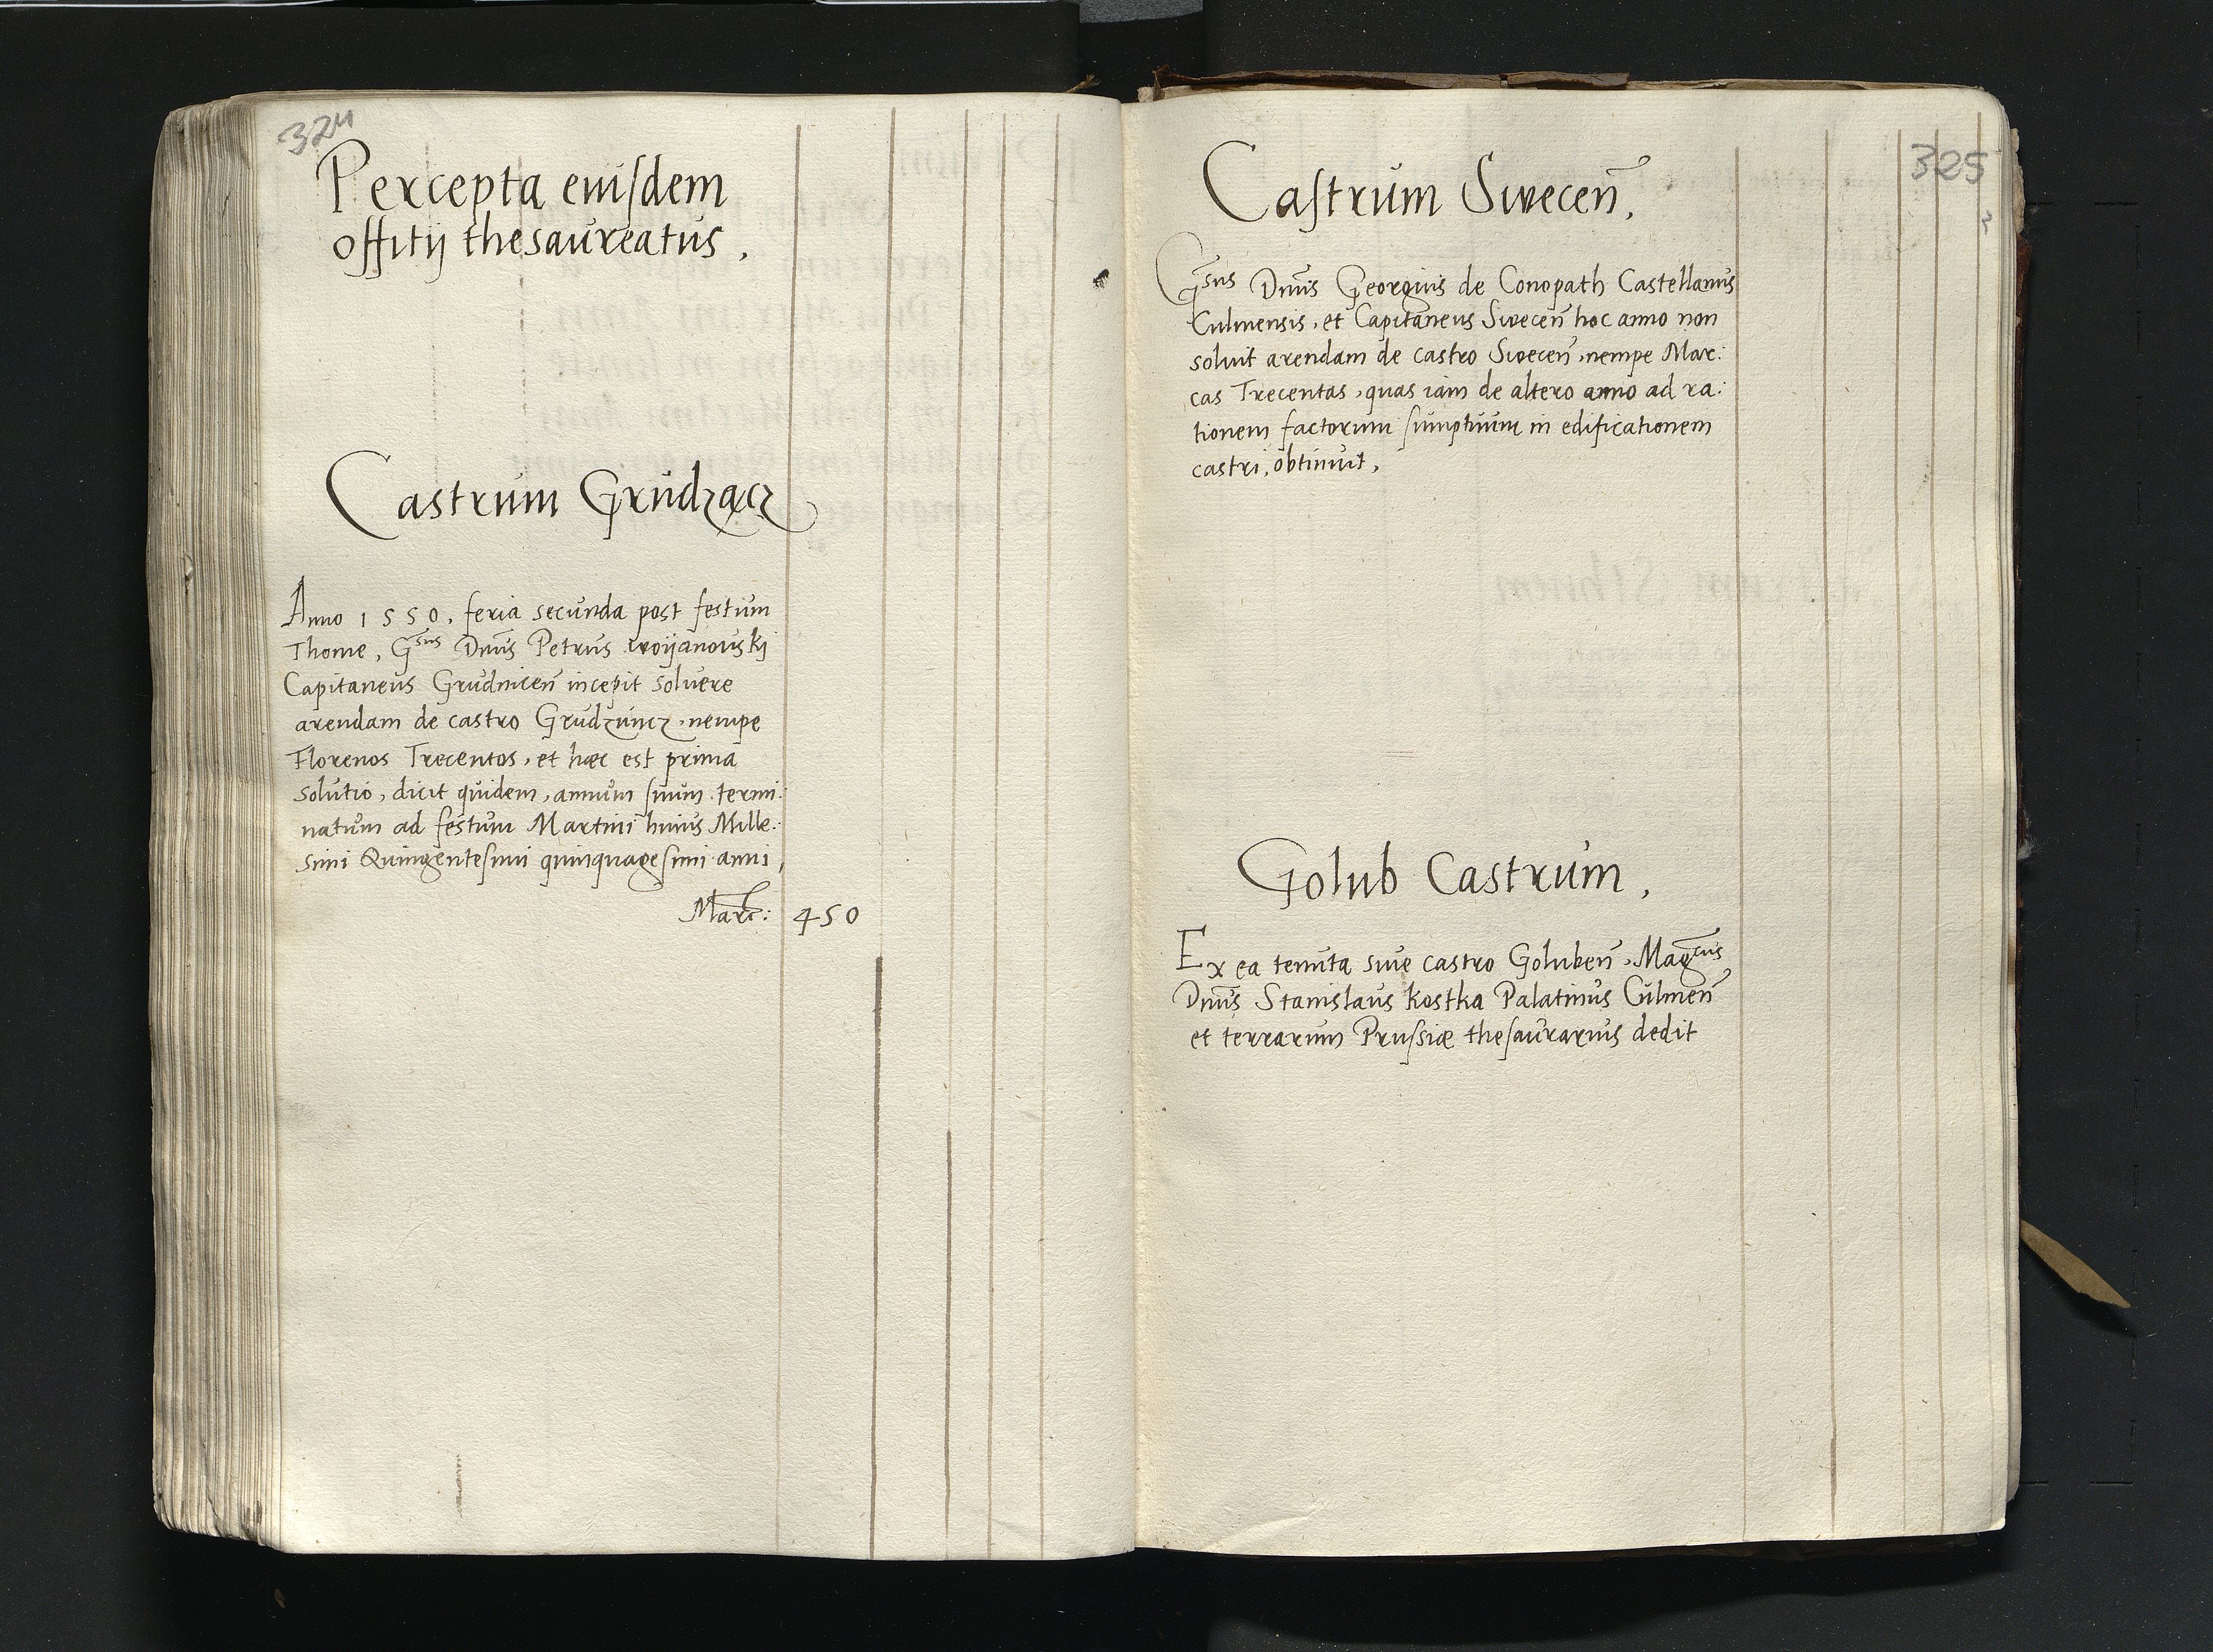 324
Percepta eiusdem
offitij thesaureatus,
Castrum Grudzącz
Anno 1550. feria secunda post festum
Thome, G̅sus Dn̅us Petrus woijanouskj
Capitaneus Grudnicen̅ incepit soluere
arendam de castro Grudzuncz, nempe
Florenos Trecentos, et hæc est prima
solutio, dicit quidem, annum suum termi:
natum ad festum Martini huius Mille:
simi Quingentesimi quinquagesimi anni,
Marc: 450
325
Castrum Swecen̅,
G̅sus Dn̅us Georgius de Conopath Castellanus
Culmensis, et Capitaneus Swecen̅ hoc anno non
soluit arendam de castro Swecen̅, nempe Mar:
cas Trecentas, quas iam de altero anno ad ra:
tionem factorum sumptuum in edificationem
castri, obtinuit,
Golub Castrum,
Ex ea tenuta siue castro Goluben̅, Mag̅cus
Dn̅us Stanislaus kostka Palatinus Culmen̅
et terrarum Prussiæ thesaurarius dedit